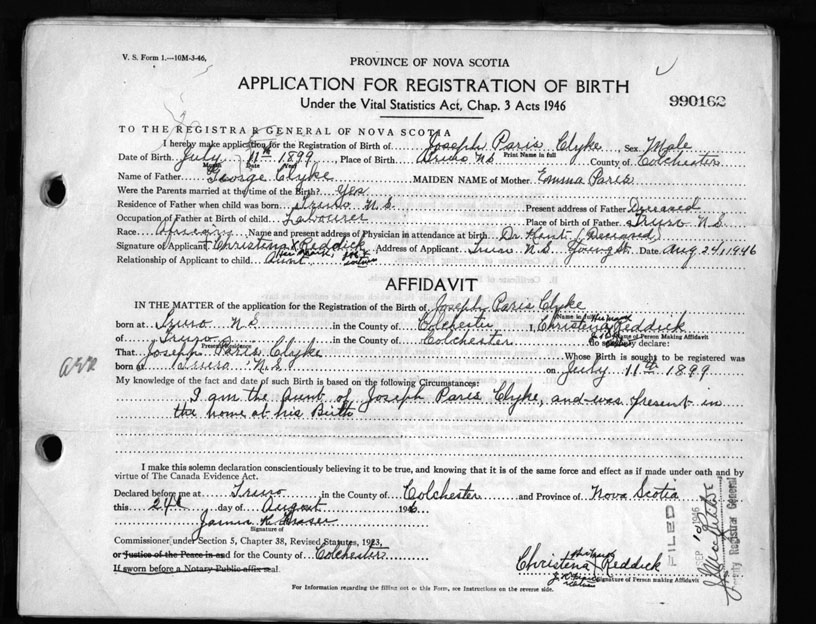 V. S. Form 1.—10M-3-46.
PROVINCE OF NOVA SCOTIA
APPLICATION FOR REGISTRATION OF BIRTH
Under the Vital Statistics Act, Chap. 3 Acts 1946
990162
TO THE REGISTRAR GENERAL OF NOVA SCOTIA
I hereby make application for the Registration of Birth of Joseph Paris Clyke, Sex Male
Print Name in full
Date of Birth July 11th 1899, Place of Birth Truro N.S. County of Colchester
Month Date Year
Name of Father George Clyke MAIDEN NAME of Mother Emma Paris
Were the Parents married at the time of the Birth? Yes
Residence of Father when child was born Truro N.S. Present address of Father Deceased
Occupation of Father at Birth of child Labourer Place of birth of Father Truro N.S.
Race African Name and present address of Physician in attendance at birth Dr. Kent (Deceased)
Signature of Applicant Christina X Reddick Address of Applicant Truro N.S. Young St. Date Aug 24, 1946
Her Mark
Relationship of Applicant to child aunt
AFFIDAVIT
IN THE MATTER of the application for the Registration of the Birth of Joseph Paris Clyke
Name in full
born at Truro N S in the County of Colchester I, Christena Reddick
Her mark
Name of Person Making Affidavit
of Truro in the County of Colchester do solemnly declare:
Present Residence
That Joseph Paris Clyke Whose Birth is sought to be registered was
born at Truro N.S. on July 11th 1899
My knowledge of the fact and date of such Birth is based on the following Circumstances:
I am the Aunt of Joseph Paris Clyke, and was present in
the home at his Birth
I make this solemn declaration conscientiously believing it to be true, and knowing that it is of the same force and effect as if made under oath and by
virtue of The Canada Evidence Act.
Declared before me at Truro in the County of Colchester and Province of Nova Scotia
this 24th day of August 1946
James K Fraser
Signature of
Commissioner under Section 5, Chapter 38, Revised Statutes, 1923,
or Justice of the Peace in and for the County of Colchester
If sworn before a Notary Public affix seal.
Christena Reddick
her mark
Signature of Person making Affidavit
FILED
SEP 10 1946
Deputy Registrar General
For Information regarding the filling out of this Form, see Instructions on the reverse side.